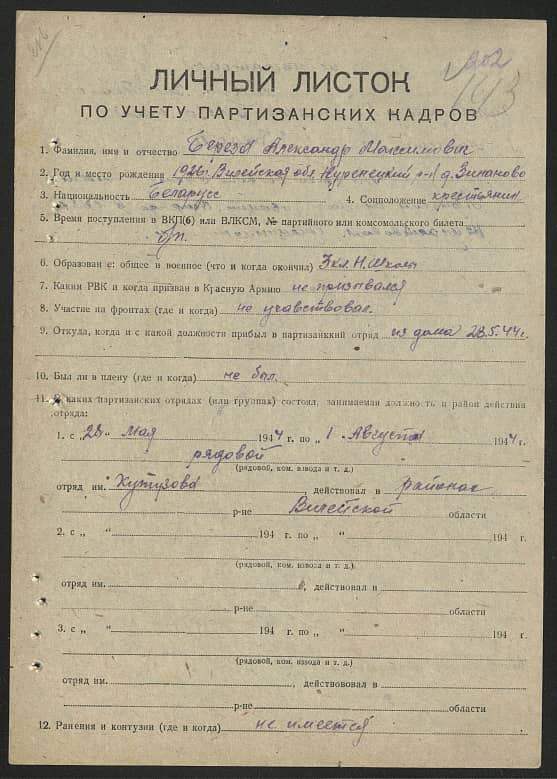 202
143
ЛИЧНЫЙ ЛИСТОК
ПО УЧЕТУ ПАРТИЗАНСКИХ КАДРОВ
1. Фамилия, имя и отчество Береза Александр Максимович
2. Год и место рождения 1926г. Вилейская обл. Куренецкий р-н д. Зиманово
3. Национальность Беларусс 4. Соцположение крестьянин
5. Время поступления в ВКП(б) или ВЛКСМ, № партийного или комсомольского билета
б/п.
6. Образован е: общее и военное (что и когда окончил) 3 кл. Н. Школы
7. Каким РВК и когда призван в Красную Армию не призывался
8. Участие на фронтах (где и когда) не учавствовал.
9. Откуда, когда и с какой должности прибыл в партизанкий отряд из дома 28.5.44г.
10. Был ли в плену (где и когда) не был.
11. В каких партизанских отрядах (или группах) состоял, занимаемая должно ть и район действия
отряда:
1. с „28" Мая 1944 г. по „ 1 . Августа 1944 г.
рядовой
(рядовой, ком. взвода и т. д.)
отряд им. Кутузова , действовал в районах
р-не Вилейской области
2. с „ " 194 г. по „ " ,194 г.
(рядовой, ком. взвода и т. д.)
отряд им. , действовал в
р-не области
3. с „ " 194 г. по „ " 194 г.
(рядовой, ком. взвода и т. д.)
отряд им. , действововал в
р-не области
12. Ранения и контузии (где и когда) не имеется